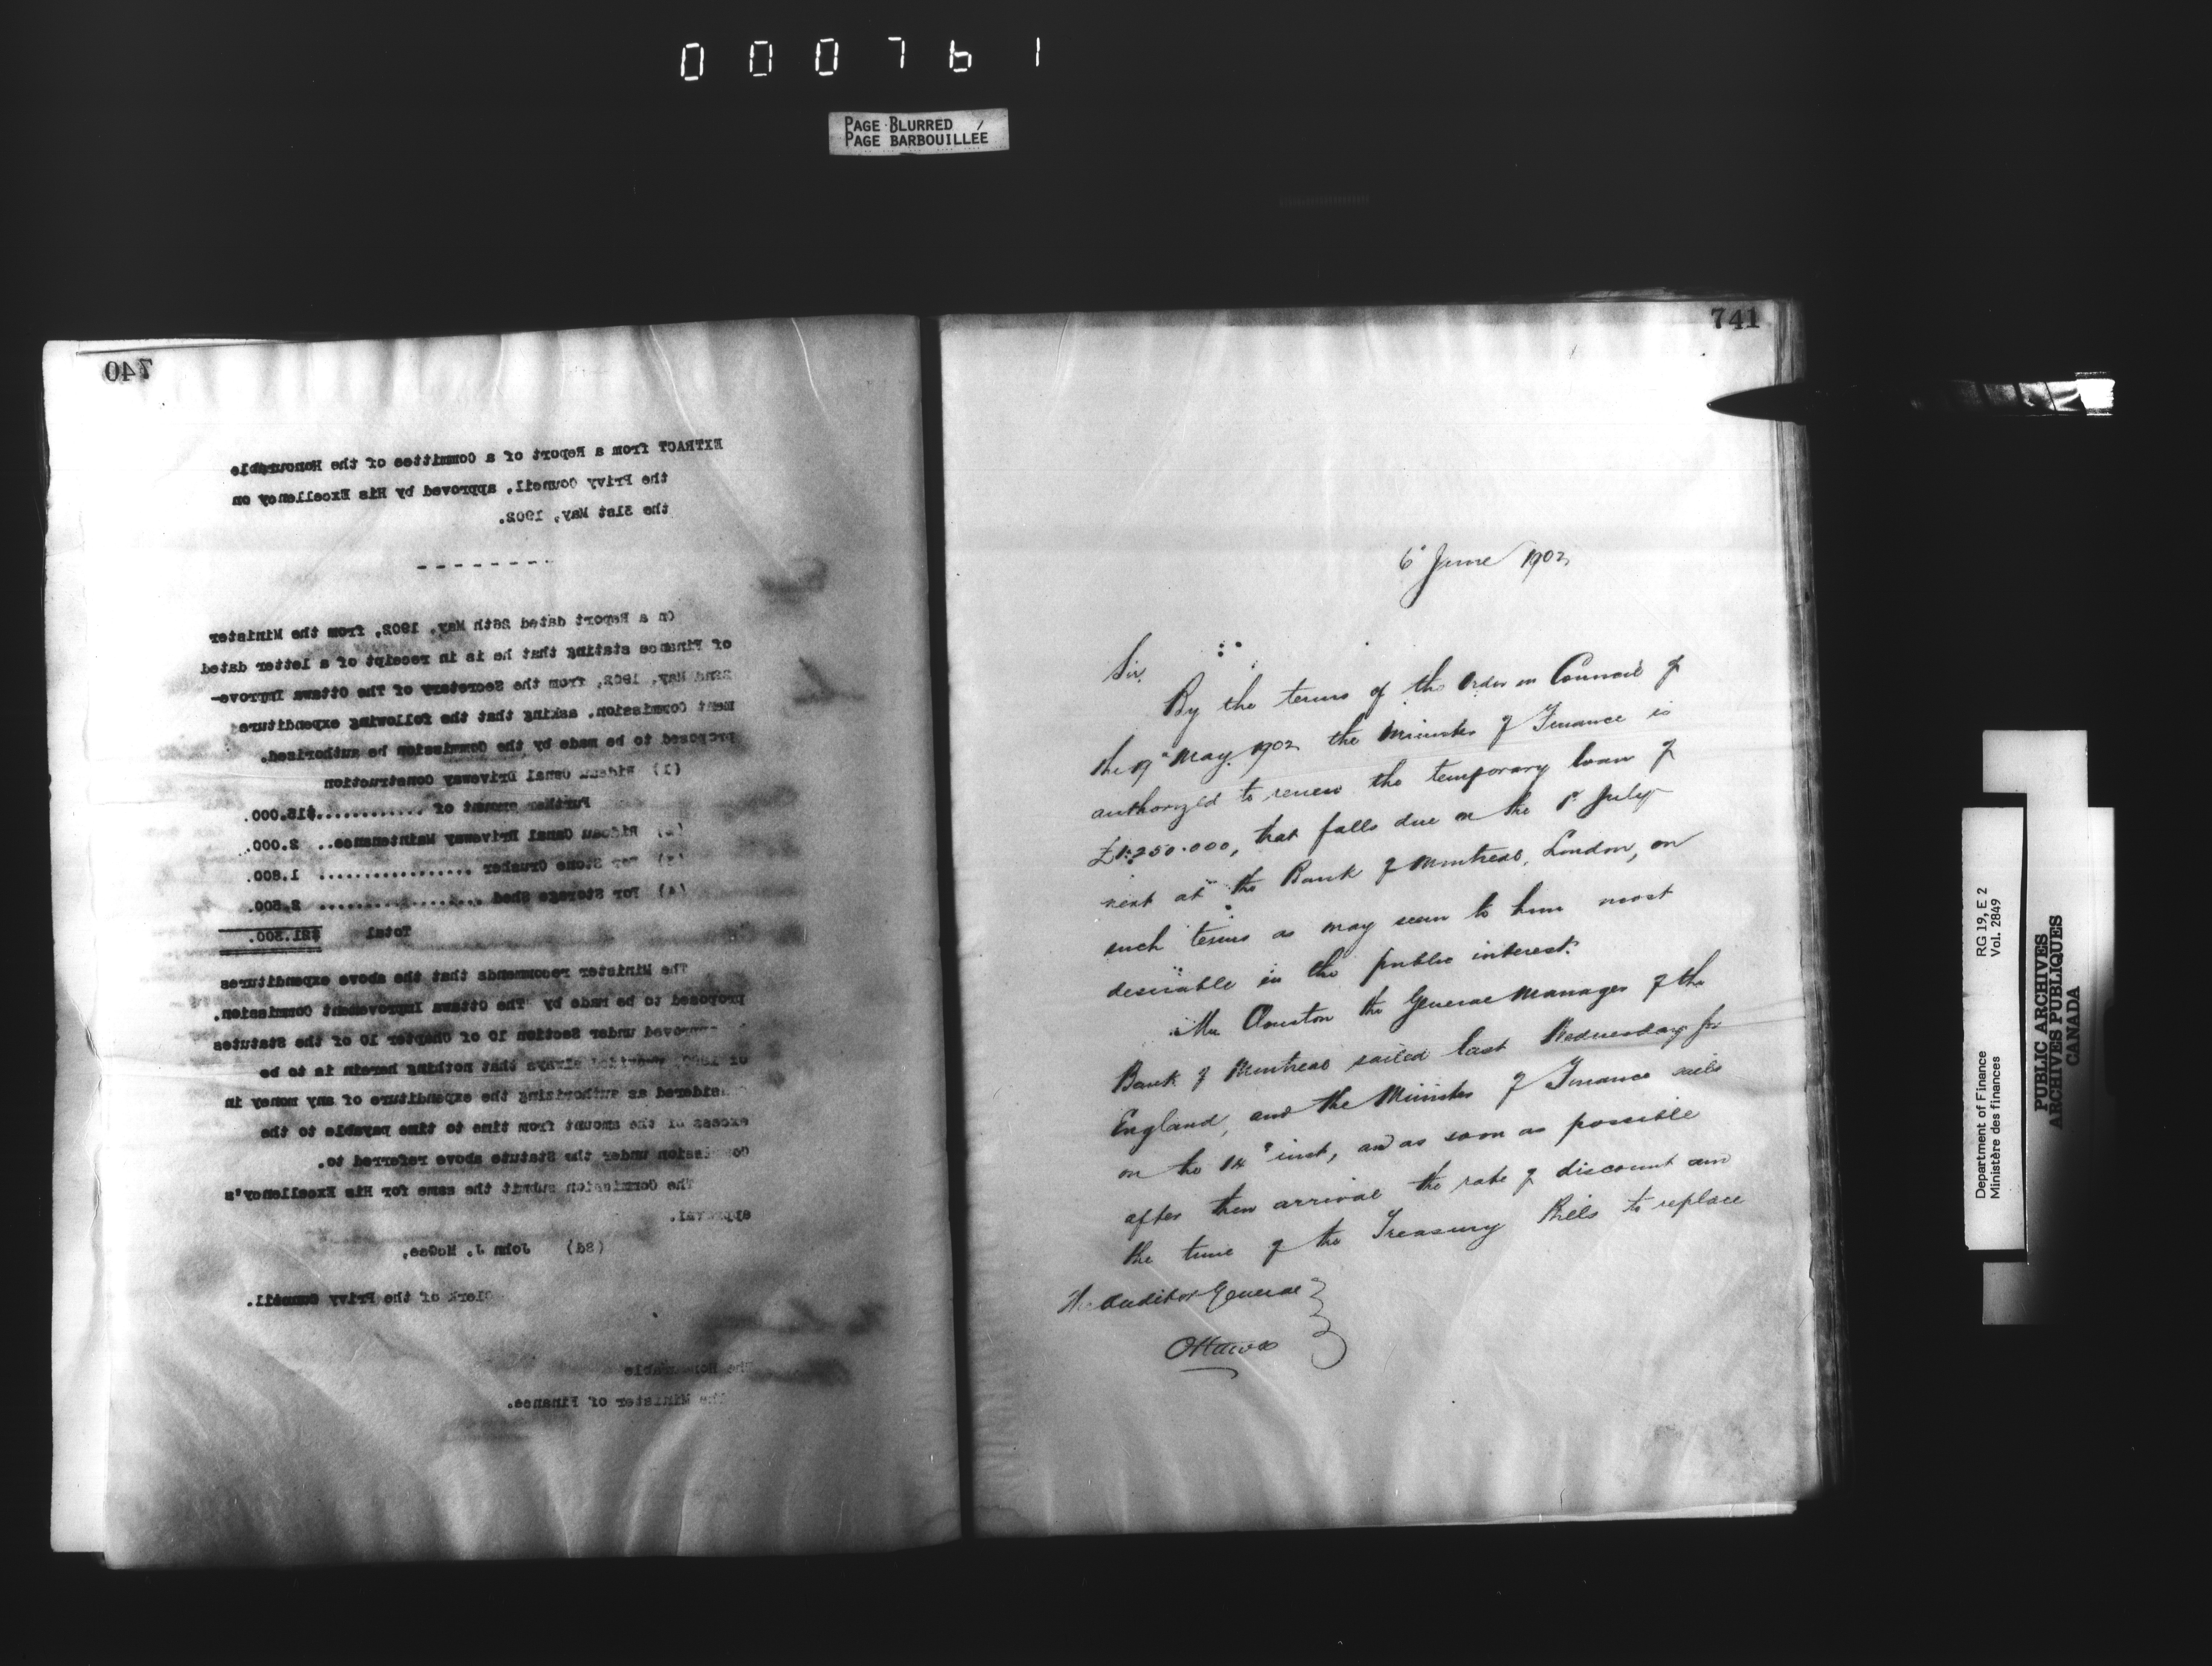 000761
PAGE BLURRED
PAGE BARBOUILLÉE
740
EXTRACT from a Report of a Committee of the Honourable
the Privy Council, approved by His Excellency on
the 31st May, 1902.
- - - - - - - -
On a Report dated 26th May, 1902, from the Minister
of Finance stating that he is in receipt of a letter dated
22nd May, 1902, from the Secretary of The Ottawa Improve-
ment Commission, asking that the following expenditure
proposed to be made by the Commission be authorised.
(1) Rideau Canal Driveway Construction
Further amount of ............$15,000.
(2) Rideau Canal Driveway Maintenance.. 2.000.
(3) For Stone Crusher ................. 1.800.
(4) For Storage Shed .................. 2,500.
Total $21.300.
The Minister recommends that the above expenditures
proposed to be made by The Ottawa Improvement Commission,
approved under Section 10 of Chapter 10 of the Statutes
of 1899, provided always that nothing herein is to be
considered as authorizing the expenditure of any money in
excess of the amount from time to time payable to the
Commission under the Statute above referred to.
The Commission submit the same for His Excellency's
approval.
(Sd) John J. McGee,
Clerk of the Privy Council.
The Honourable
The Minister of Finance.
741
6" June 1902
Sir,
By the terms of the Order in Council of
the 19" May 1902 the Minister of Finance is
authorized to renew the temporary loan of
£1.250.000, that falls due on the 1st July
next at the Bank of Montreal, London, on
such terms as may seem to him most
desirable in the public interest.
Mr Clouston the General Manager of the
Bank of Montreal sailed last Wednesday for
England, and the Minister of Finance sails
on the 14" inst, and as soon as possible
after their arrival the rate of discount and
the time of the Treasury Bills to replace
The Auditor General
Ottawa
Department of Finance RG 19, E 2
Ministère des finances Vol. 2849
PUBLIC ARCHIVES
ARCHIVES PUBLIQUES
CANADA